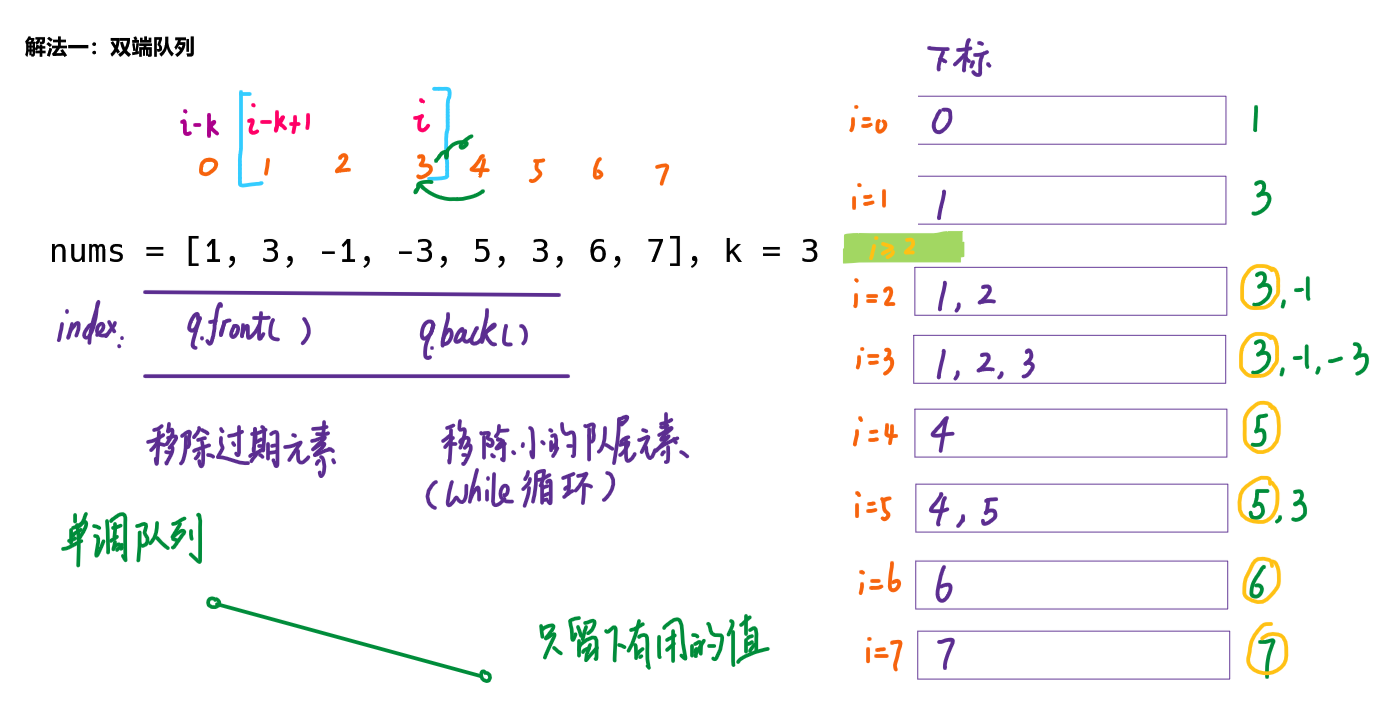 解法一：双端队列
i-k i-k+1 i
0 1 2 3 4 5 6 7
nums = [1, 3, -1, -3, 5, 3, 6, 7], k = 3
index: q.front( ) q.back()
移除过期元素
移除小的队尾元素
(while循环)
单调队列
只留下有用的值
下标
i=0 0 1
i=1 1 3
i≥2
i=2 1, 2 3, -1
i=3 1, 2, 3 3, -1, -3
i=4 4 5
i=5 4, 5 5, 3
i=6 6 6
i=7 7 7